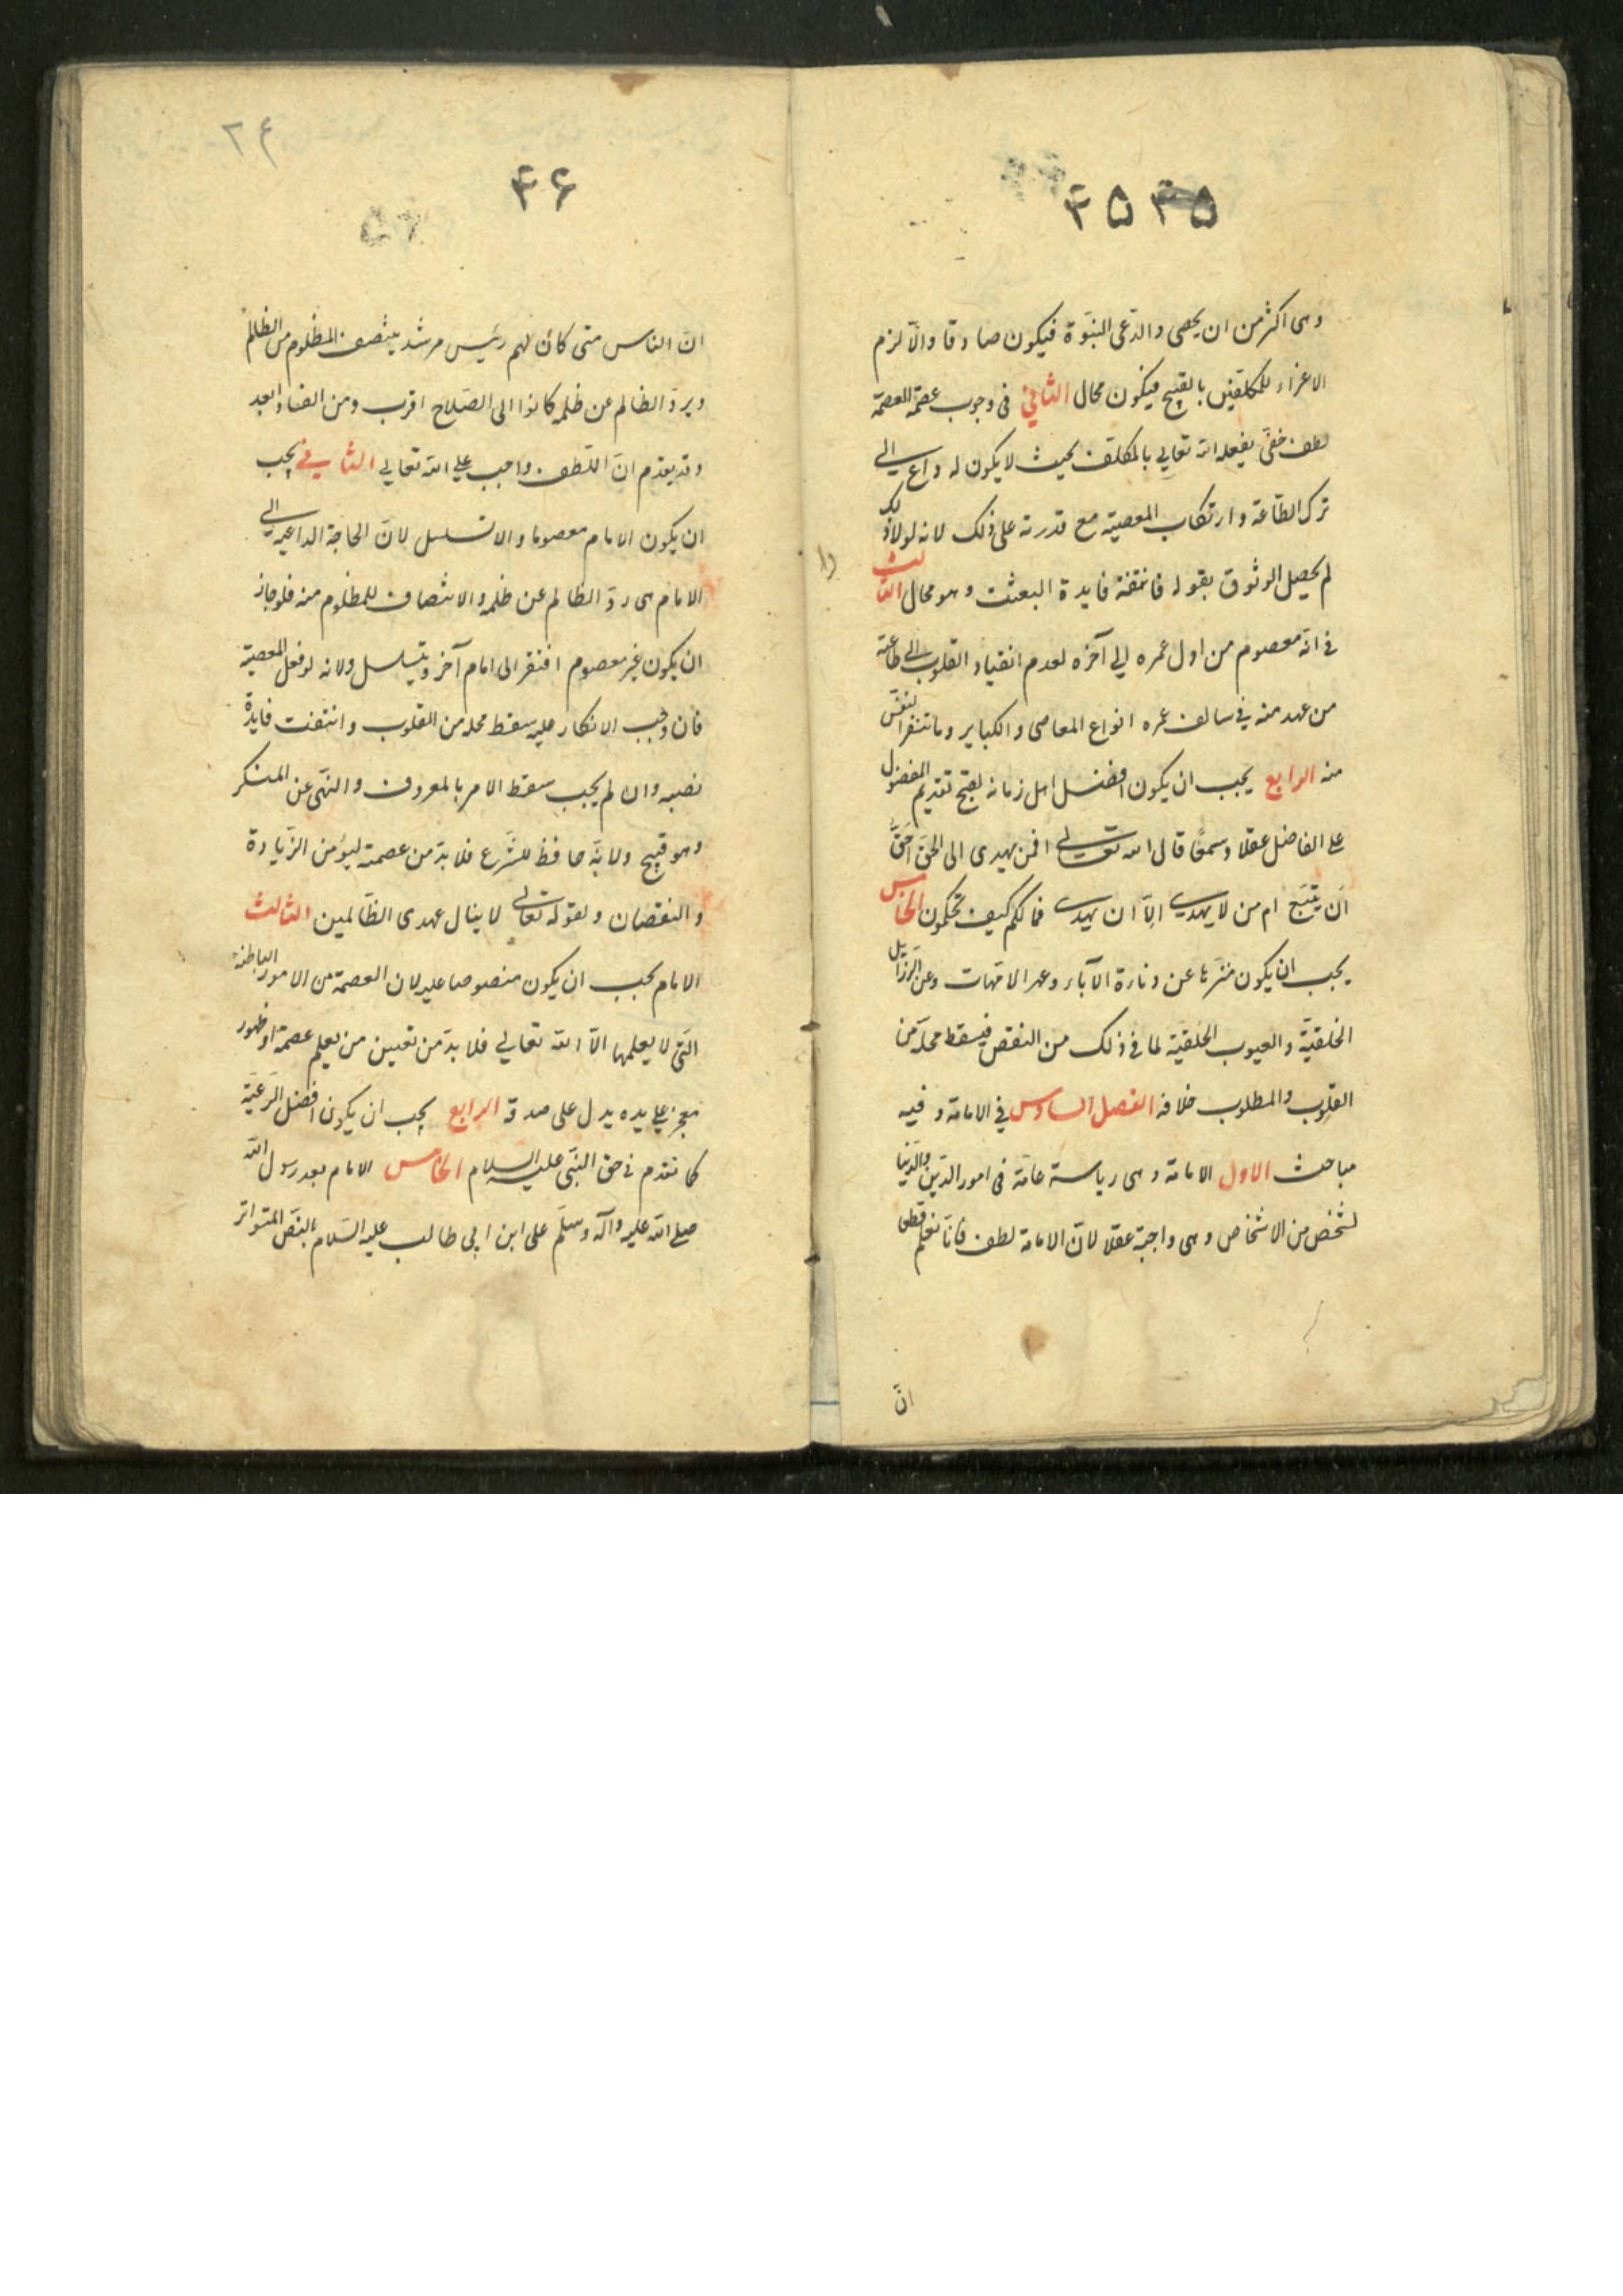 ۴۵ ۴۵
وهی اکثر من ان یحصی والدّعی النبوّة فیکون صادقا والّا لزم
الاغراء للمکلّفین بالقبیح فیکون محال الثانی فی وجوب عصمة العصمة
لطف خفیّ یفعله الله تعالی بالمکلّف بحیث لا یکون له داع الی
ترک الطّاعة وارتکاب المعصیة مع قدرته علی ذلک لانه لولا ذلک
لم یحصل الوثوق بقوله فانتفت فایدة البعثت وهو محال الثالث
فی انّه معصوم من اول عمره الی آخره لعدم انقیاد القلوب الی طاعة
من عهد منه فی سالف عمره انواع المعاصی والکبایر وما تنفر النفس
منه الرابع یجب ان یکون افضل اهل زمانه لقبح تقدیم المفضول
علی الفاضل عقلا وسمعًا قال الله تعالی افمن یهدی الی الحقّ احقّ
ان یتّبع ام من لا یهدی الّا ان یهدی فما لکم کیف تحکمون الخامس
یجب ان یکون منزّها عن دناءة الآباء وعهر الامّهات وعن الرّزایل
الخلقیّة والعیوب الخلقیّة لما فی ذلک من النقص فیسقط محلّه من
القلوب والمطلوب خلافه الفصل السادس فی الامامة وفیه
مباحث الاول الامامة وهی ریاسة عامّة فی امور الدّین والدّنیا
لشخص من الاشخاص وهی واجبة عقلا لانّ الامامة لطف فانّا نعلم قطعی
انّ
۲۴
۴۶
انّ الناس متی کان لهم رئیس مرشد ینتصف المظلوم من الظلم
ویردّ الظالم عن ظلمه کانوا الی الصّلاح اقرب ومن الفساد ابعد
وقد یقدم انّ اللّطف واجب علی الله تعالی الثانی یجب
ان یکون الامام معصوما والا تسلسل لانّ الحاجة الداعیة الی
الامام هی ردّ الظالم عن ظلمه والانتصاف للمظلوم منه فلو جاز
ان یکون غیر معصوم افتقر الی امام آخر ویتسلسل ولانه لو فعل المعصیة
فان وجب الانکار علیه سقط محله من القلوب وانتفت فایدة
نصبه وان لم یجب سقط الامر بالمعروف والنّهی عن المنکر
وهو قبیح ولانّه حافظ للشّرع فلا بدّ من عصمته لیؤمن الزّیادة
والنقصان ولقوله تعالی لا ینال عهدی الظّالمین الثالث
الامام یجب ان یکون منصوصا علیه لان العصمة من الامور الباطنة
الّتی لا یعلمها الّا الله تعالی فلا بدّ من تعیین من یعلم عصمة او ظهور
معجز علی یده یدل علی صدقه الرابع یجب ان یکون افضل الرّعیّة
کما تقدم فی حق النبّی علیه السلام الخامس الامام بعد رسول الله
صلی الله علیه وآله وسلّم علی ابن ابی طالب علیه السّلام بالنّص المتواتر